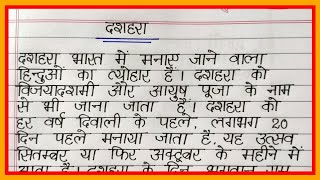 दशहरा
दशहरा भारत में मनाए जाने वाला
हिन्दुओं का त्योहार हैं। दशहरा को
विजयादशमी और आयुध पूजा के नाम
से भी जाना जाता हैं। दशहरा को
हर वर्ष दिवाली के पहले, लगभग 20
दिन पहले मनाया जाता हैं. यह उत्सव
सितम्बर या फिर अक्टूबर के महीने में